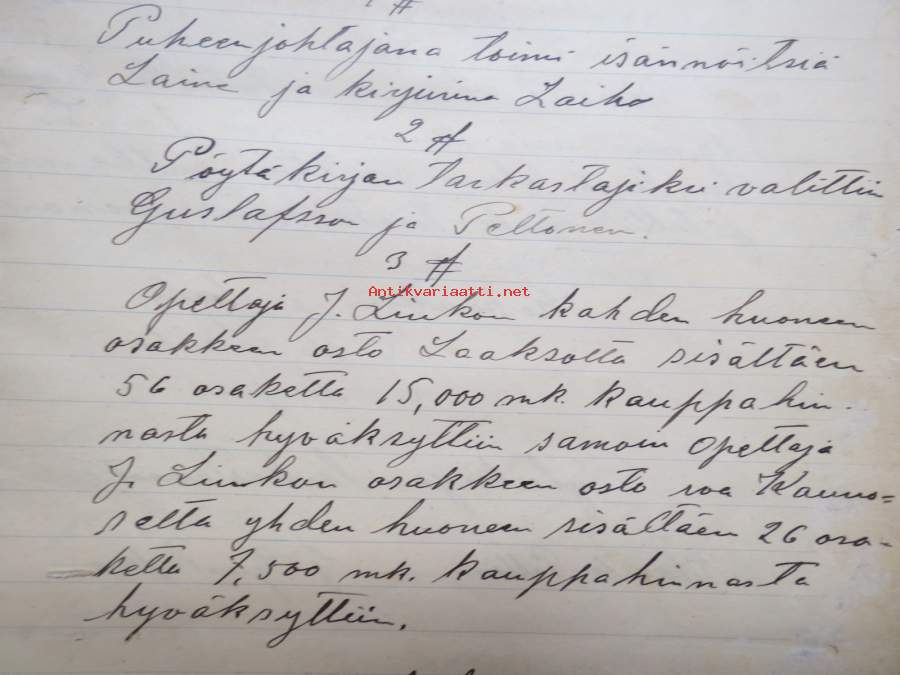 1 #
Puheenjohtajana toimi isännöitsiä
Laine ja kirjurina Laiho
2 #
Pöytäkirjan tarkastajiksi valittiin
Gustafsson ja Peltonen.
3 #
Antikvariaatti.net
Opettaja J. Linkon kahden huoneen
osakkeen osto Laaksolta sisältäen
56 osaketta 15,000 mk. kauppahin-
nasta hyväksyttiin samoin Opettaja
J. Linkon osakkeen osto
selta yhden huoneen sisältäen 26 osa-
ketta 7,500 mk. kauppahinnasta
hyväksyttiin.